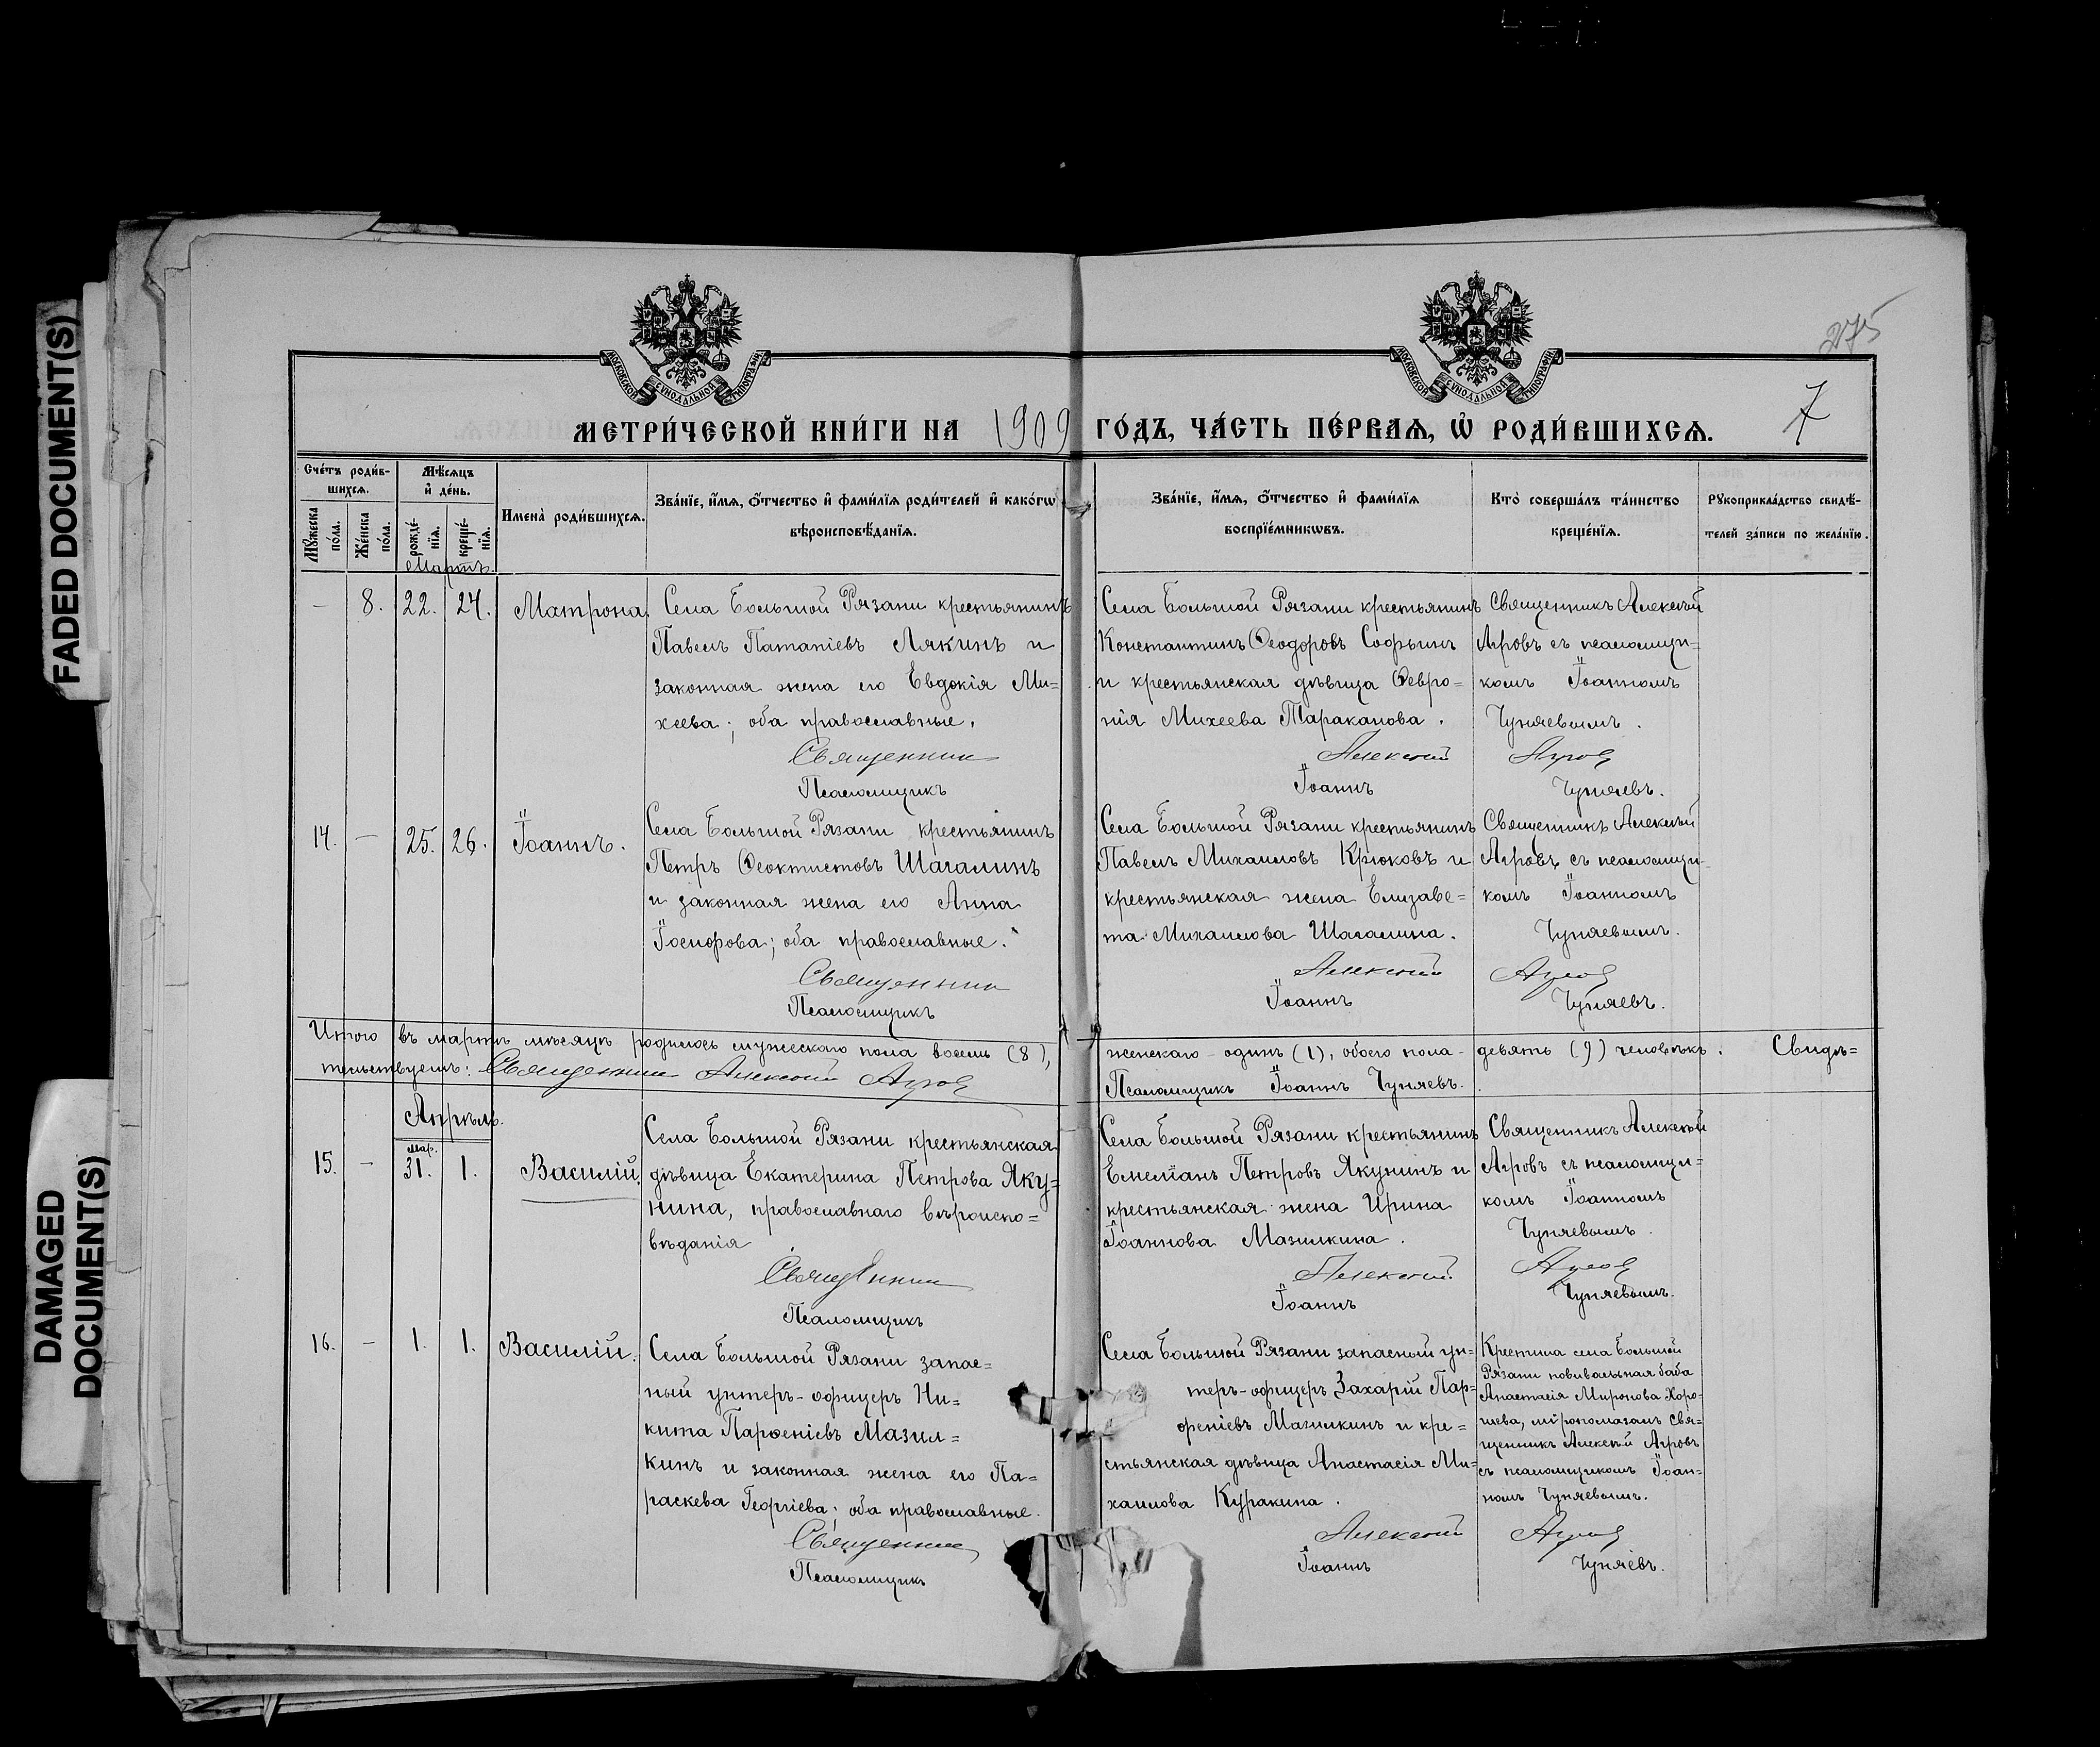 FADED DOCUMENT(S)
DAMAGED
DOCUMENT(S)
МОСКОВСКОЙ СѴНОДАЛЬНОЙ ТИПОГРАФІИ
МОСКОВСКОЙ СѴНОДАЛЬНОЙ ТИПОГРАФІИ
275
МЕТРИ́ЧЕСКОЙ КНИ́ГИ НА 1909 ГО́ДЪ, ЧА́СТЬ ПЕ́РВАѦ, Ѽ РОДИ́ВШИХСѦ.
7
Сче́тъ роди́в-
шихсѧ.
Мꙋ́жеска
по́ла.
Же́нска
по́ла.
Мѣ́сѧцъ
и҆ де́нь.
рожде́-
нїѧ.
креще́-
нїѧ.
Имена̀ роди́вшихсѧ.
Зва́нїе, и҆́мѧ, ѻ҆́тчество и҆ фами́лїѧ роди́телей и҆ како́гѡ
вѣроисповѣ́данїѧ.
Зва́нїе, и҆́мѧ, ѻ҆́тчество и҆ фами́лїѧ
воспрїе́мникѡвъ.
Кто̀ соверша́лъ та́инство
креще́нїѧ.
Рꙋкоприкла́дство свидѣ́-
телей за́писи по жела́нїю.
Мартъ.
— 8. 22. 24. Матрона.
Села Большой Рязани крестьянинъ
Павелъ Потапіевъ Лякинъ и
законная жена его Евдокія Ми=
хеева; оба православные.
Священник
Псаломщикъ
Села Большой Рязани крестьянинъ
Константинъ Ѳеодоровъ Софьинъ
и крестьянская дѣвица Ѳевро=
нія Михеева Тараканова.
Алексій
Іоаннъ
Священникъ Алексѣй
Агровъ съ псаломщи=
комъ Іоанномъ
Чуняевымъ.
Агров
Чуняевъ.
14. — 25. 26. Іоаннъ.
Села Большой Рязани крестьянинъ
Петръ Ѳеоктистовъ Шагалинъ
и законная жена его Анна
Іосифова; оба православные.
Священник
Псаломщикъ
Села Большой Рязани крестьянинъ
Павелъ Михаиловъ Крюковъ и
крестьянская жена Елизаве=
та Михаилова Шагалина.
Алексій
Іоаннъ
Священникъ Алексѣй
Агровъ съ псаломщи-
комъ Іоанномъ
Чуняевымъ.
Агров
Чуняевъ.
Итого въ мартѣ мѣсяцѣ родилось мужескаго пола восемь (8), женскаго - одинъ (1), обоего пола - девять (9) человѣкъ. Свидѣ=
тельствуемъ: Священник Алексій Агров Псаломщикъ Іоаннъ Чуняевъ.
Апрѣль.
мар.
15. — 31. 1. Василій.
Села Большой Рязани крестьянская
дѣвица Екатерина Петрова Яку=
нина, православнаго вѣроиспо=
вѣданія
Священник
Псаломщикъ
Села Большой Рязани крестьянинъ
Емеліанъ Петровъ Якунинъ и
крестьянская жена Ирина
Іоаннова Мазилкина.
Алексій
Іоаннъ
Священникъ Алексѣй
Агровъ съ псаломщи=
комъ Іоанномъ
Чуняевымъ.
Агров
Чуняевымъ.
16. — 1. 1. Василій.
Села Большой Рязани запас=
ный унтеръ-офицеръ Ни=
кита Парѳеніевъ Мазил=
кинъ и законная жена его Па=
раскева Георгіева; оба православные.
Священник
Псаломщикъ
Села Большой Рязани запасный ун=
теръ-офицеръ Захарій Пар=
ѳеніевъ Мазилкинъ и кре=
стьянская дѣвица Анастасія Ми=
хаилова Куракина.
Алексій
Іоаннъ
Крестила села Большой
Рязани повивальная баба
Анастасія Миронова Хоро=
шева, мѵропомазалъ Свя=
щенникъ Алексѣй Агровъ
съ псаломщикомъ Іоан=
номъ Чуняевымъ.
Агров
Чуняевъ.